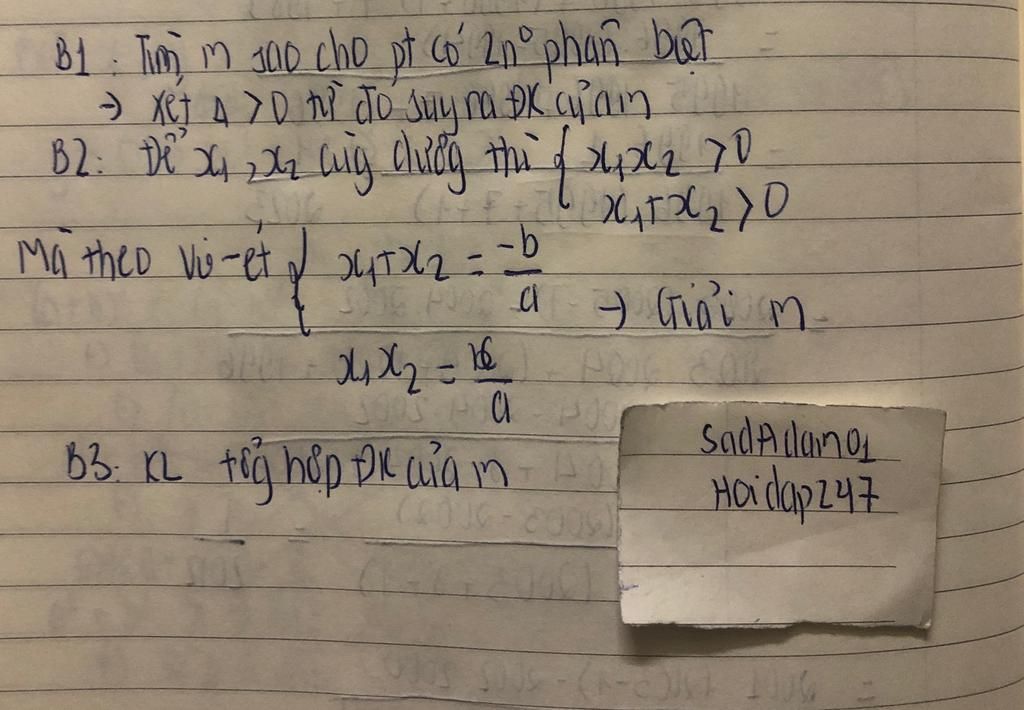 B1: Tìm m sao cho pt có 2n° phân biệt
→ xét Δ > 0 từ đó suy ra ĐK của m
B2: Để x₁, x₂ cùg dươg thì { x₁x₂ > 0
x₁+x₂ > 0
Mà theo Vi-ét { x₁+x₂ = -b/a
→ Giải m
x₁x₂ = c/a
B3: KL tổg hợp ĐK của m
SadAdam01
Hoidap247